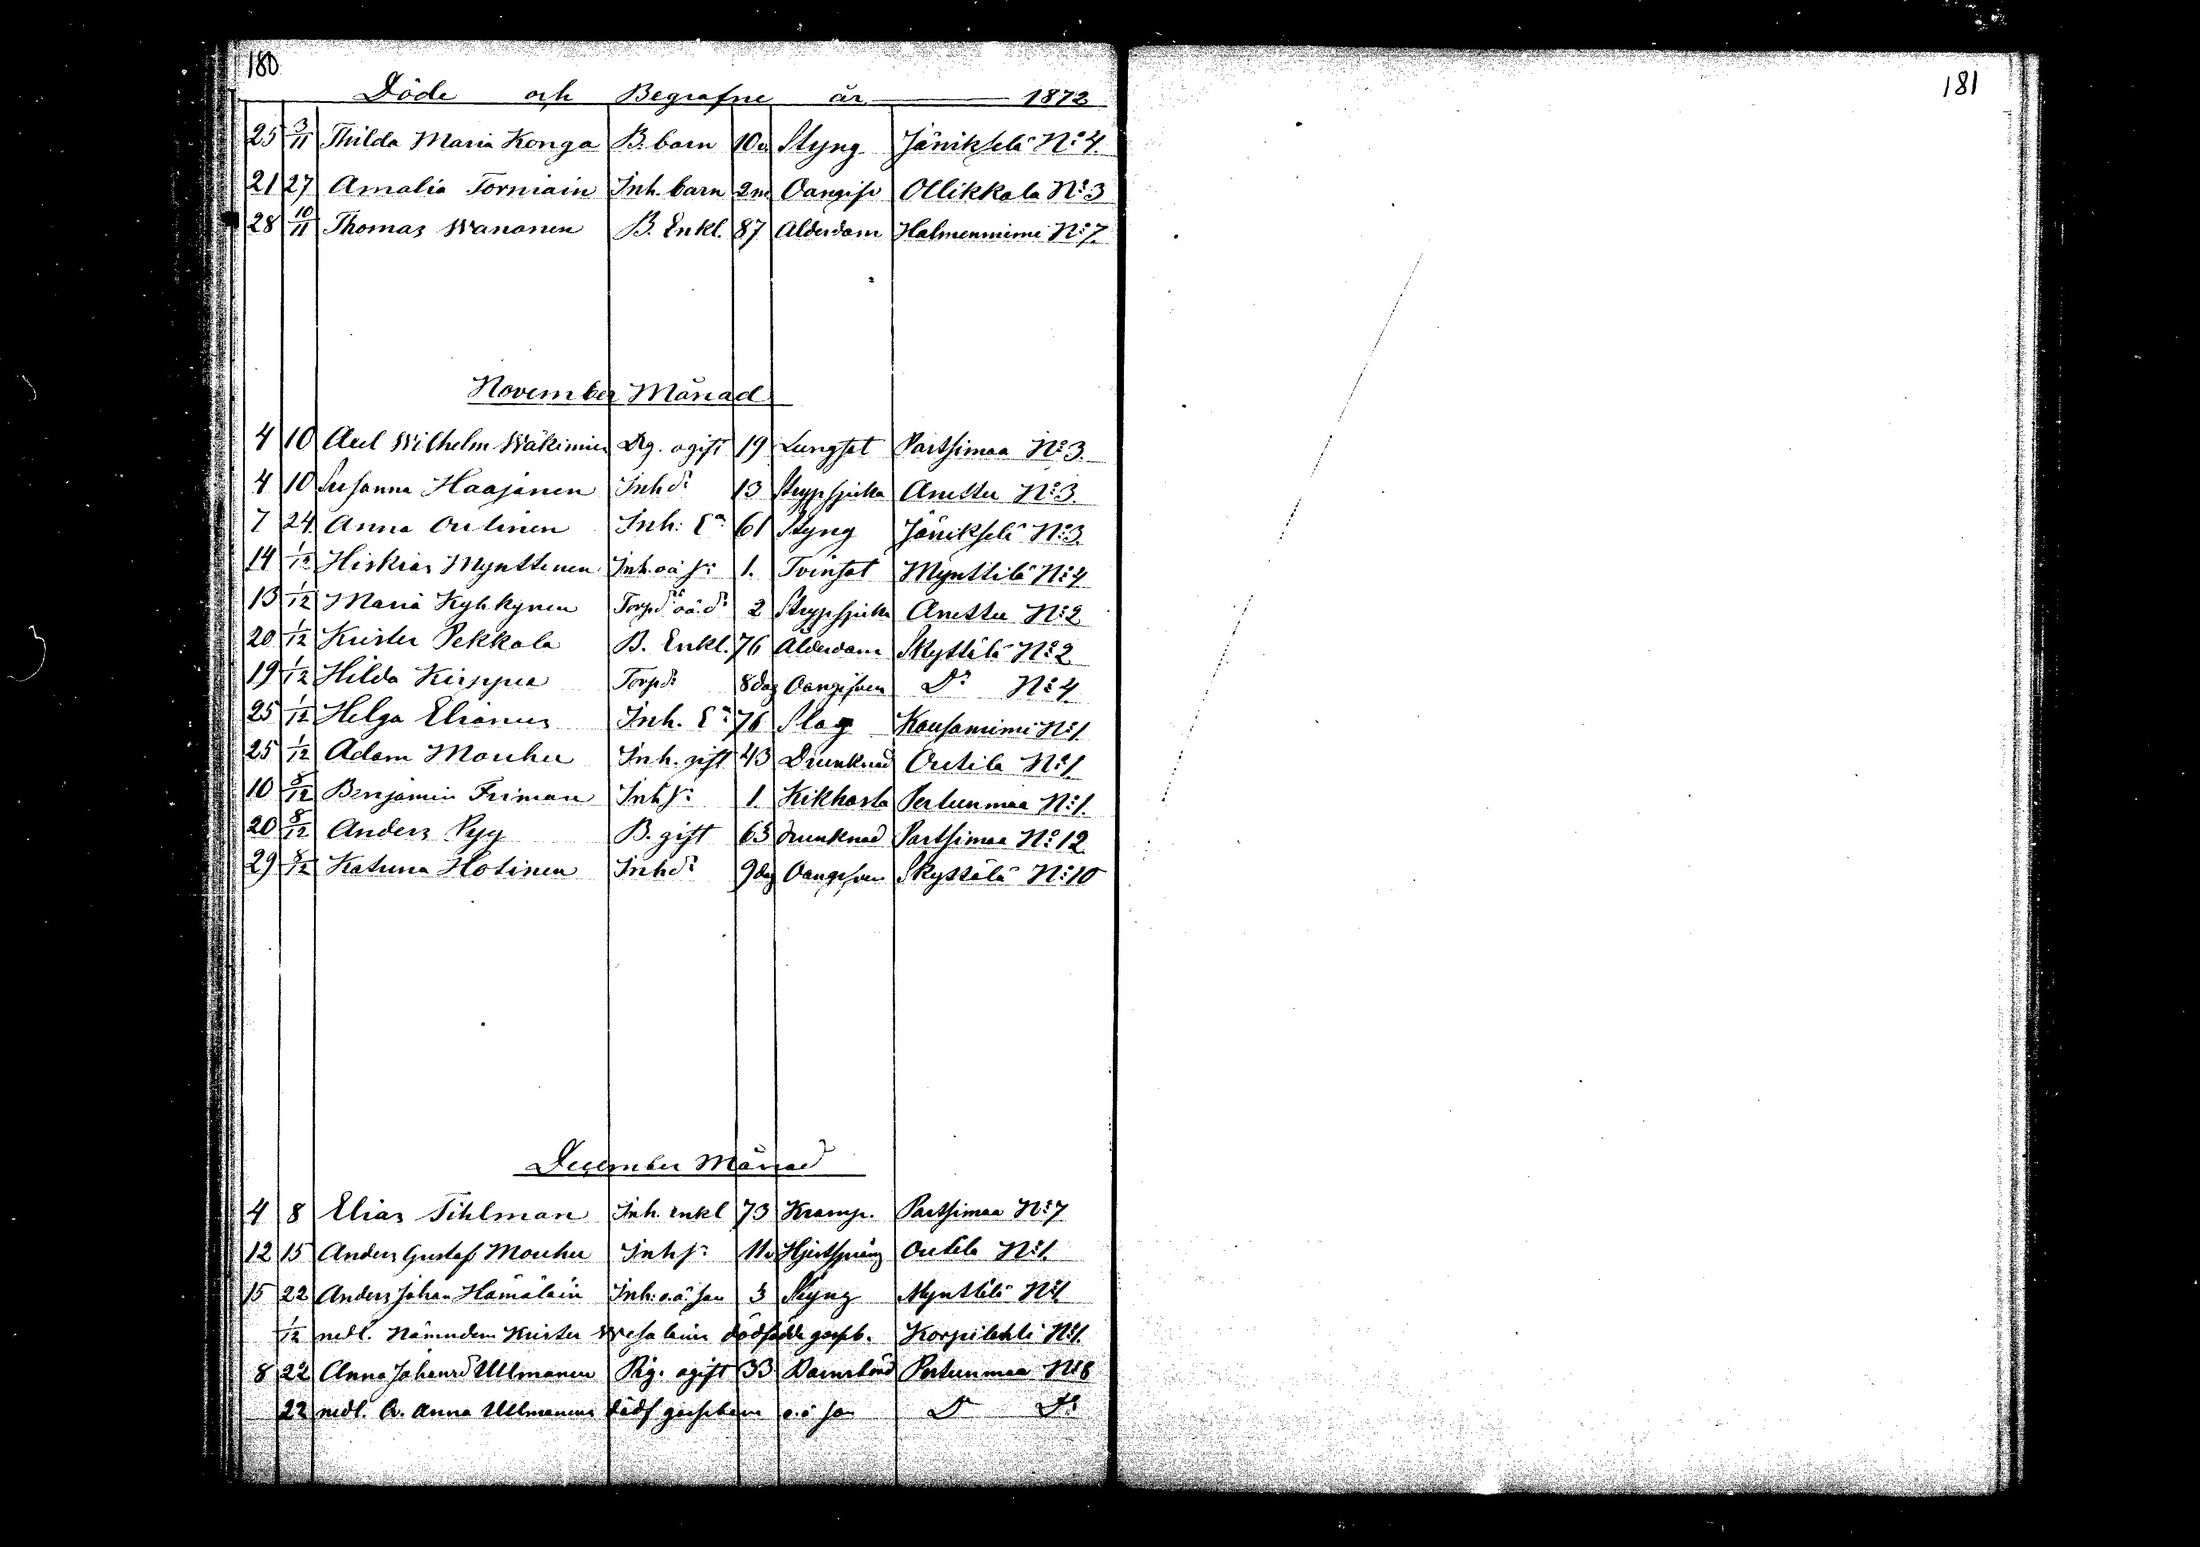 180
181
Döde och Begrafne år 1872
25 3/11 Thilda Maria Konga B. barn 10v Styng Jänikselä No 4.
21 27 Amalia Torniain Inh. barn 2m Oangifv Ollikkala No 3
28 10/11 Thomas Wananen B. Enkl. 87 Ålderdom Halmenniemi No 7.
November Månad
4 10 Axel Wilhelm Wäkiminen Drg. ogift 19 Lungsot Partsimaa No 3.
4 10 Susanna Haajanen Inh dr 13 Strypsjuka Anettu No 3.
7 24 Anna Outinen Inh: Ea 61 Styng Jänikselä No 3.
14 1/12 Hiskias Mynttinen Inh. oä sn 1. Tvinsot Mynttilä No 4
13 1/12 Maria Kyhkynen Torpd oä. dr 2 Strypsjuka Anettu No 2
20 1/12 Krister Pekkola B. Enkl. 76 Ålderdom Skyttilä No 2
19 1/12 Hilda Kirppu Torpdr 8 dag Oangifven Do No 4
25 1/12 Helga Elianus Inh. Ea 76 Slag Kousaniemi No 1.
25 1/12 Adam Mouhu Inh. gift 43 Drunknad Outila No 1.
10 8/12 Benjamin Friman Inh sn 1. Kikhosta Pertunmaa No 1.
20 8/12 Anders Pyy B. gift 63 drunknad Partsimaa No 12
29 8/12 Katrina Hotinen Inhdr 9 dag Oangifven Skyttälä No 10
December Månad
4 8 Elias Tihlman Inh. enkl 73 Kramp. Partsimaa No 7
12 15 Anders Gustaf Mouhu Inh sn 11v Hjertsprång Outila No 1.
15 22 Anders Johan Hämäläin Inh: o.ä. son 3 Styng Mynttilä No 1
1/12 nedl. Nämndem Krister Wesalains dödfödde gossb. Korpilahti No 1.
8 22 Anna Johansd Ullmanen Pig. ogift 33 Barnsbörd Pertunmaa No 8
22 nedl. Q. Anna Ullmanens dödf gossebarn o.ä son Do Do